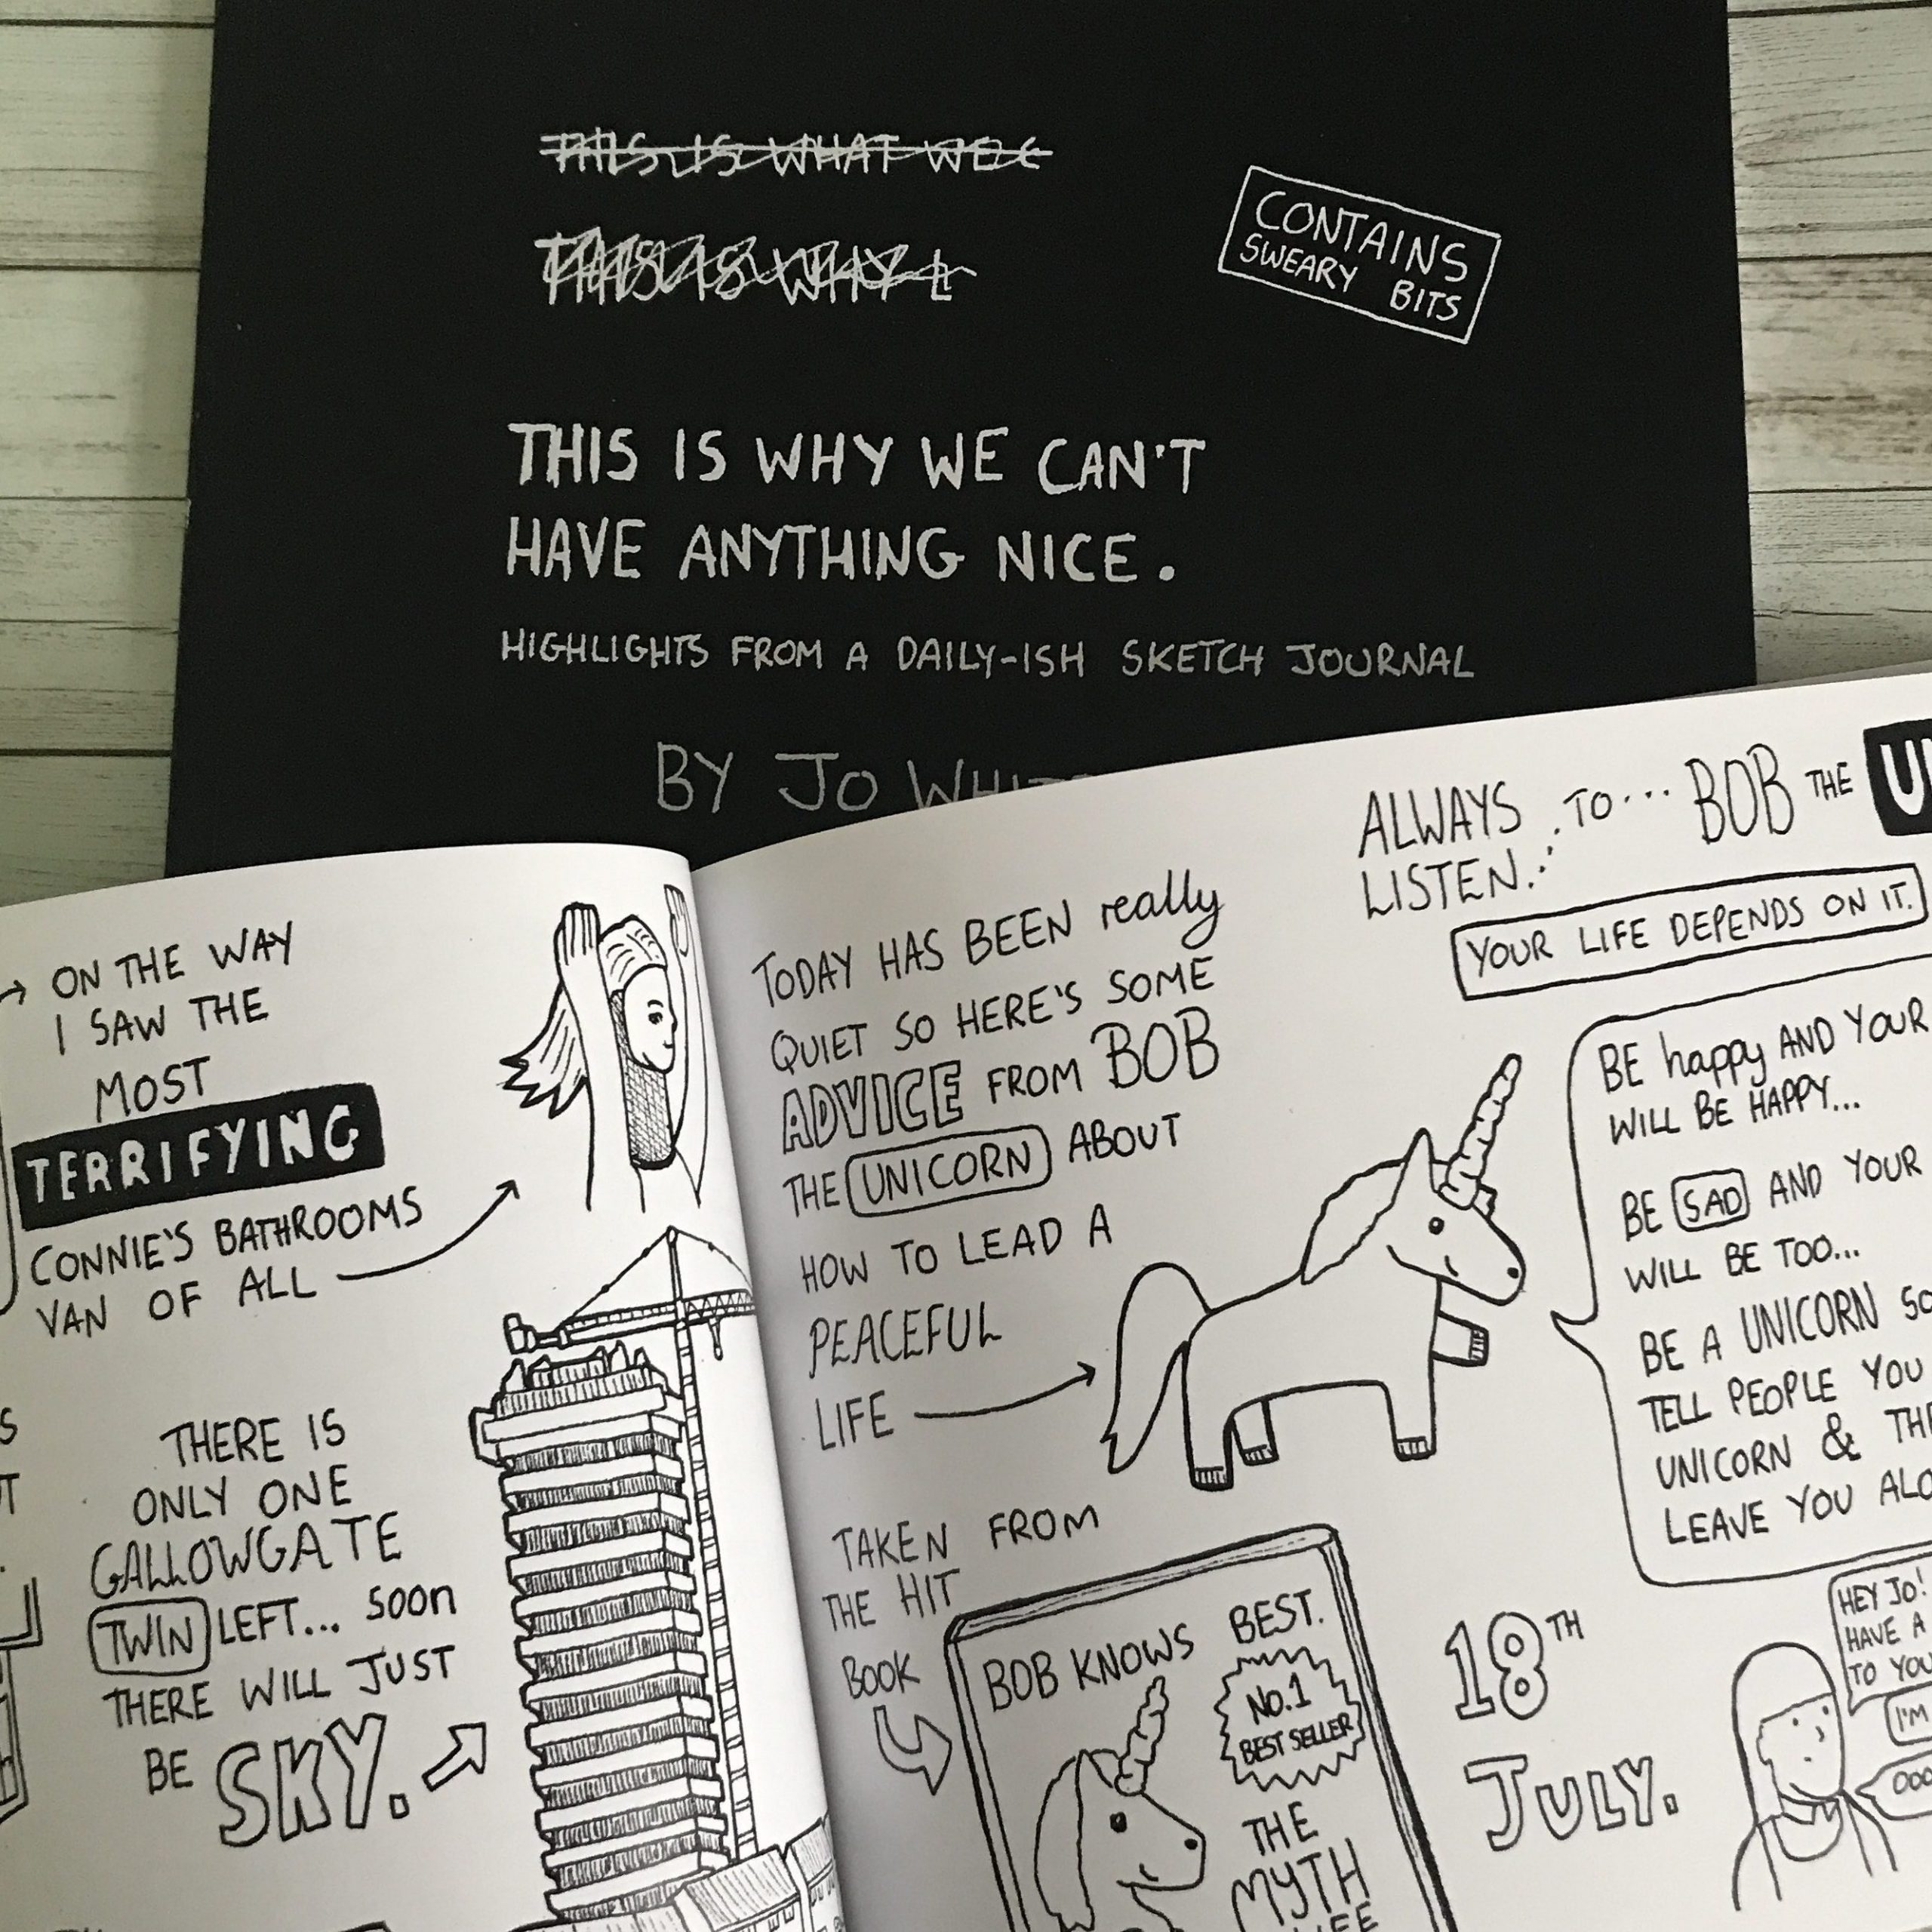 THIS IS WHAT WE
THIS IS WHY
CONTAINS
SWEARY BITS
THIS IS WHY WE CAN'T
HAVE ANYTHING NICE.
HIGHLIGHTS FROM A DAILY-ISH SKETCH JOURNAL
BY JO
ON THE WAY
I SAW THE
MOST
TERRIFYING
CONNIE'S BATHROOMS
VAN OF ALL
THERE IS
ONLY ONE
GALLOWGATE
TWIN LEFT... soon
THERE WILL JUST
BE SKY.
TODAY HAS BEEN really
QUIET SO HERE'S SOME
ADVICE FROM BOB
THE UNICORN ABOUT
HOW TO LEAD A
PEACEFUL
LIFE
TAKEN FROM
THE HIT
BOOK
BOB KNOWS BEST.
No.1
BEST SELLER
THE
MYTH
ALWAYS
LISTEN... TO... BOB THE
YOUR LIFE DEPENDS ON IT.
BE happy AND YOUR
WILL BE HAPPY...
BE SAD AND YOUR
WILL BE TOO...
BE A UNICORN
TELL PEOPLE YOU
UNICORN &
LEAVE YOU
18TH
JULY.
HEY JO!
HAVE A
TO
I'M